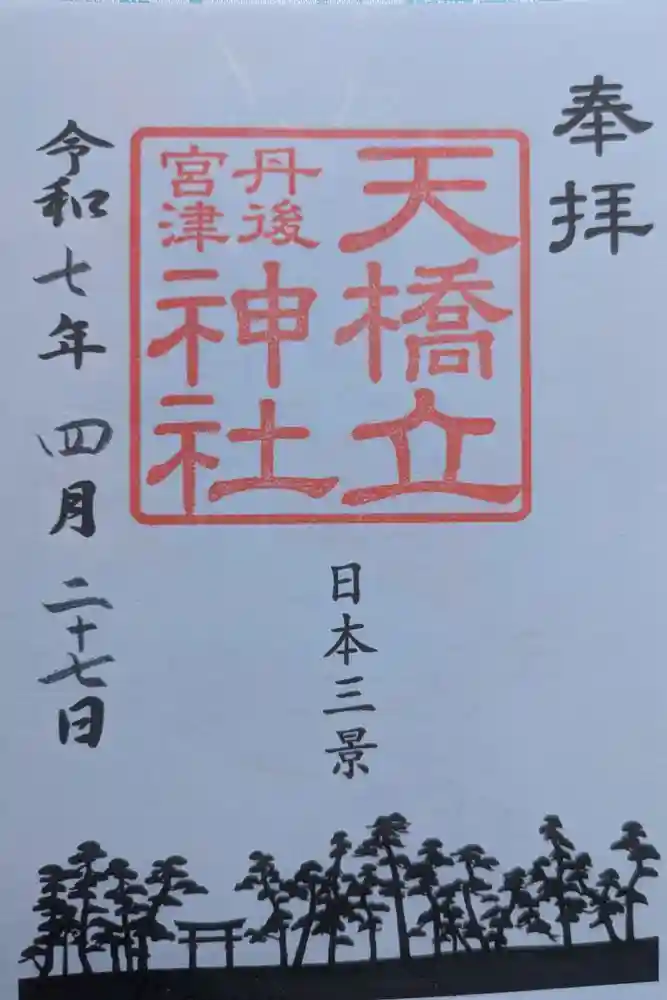 奉拝
天橋立
丹後
宮津
神社
神社
日本三景
令和七年四月二十七日